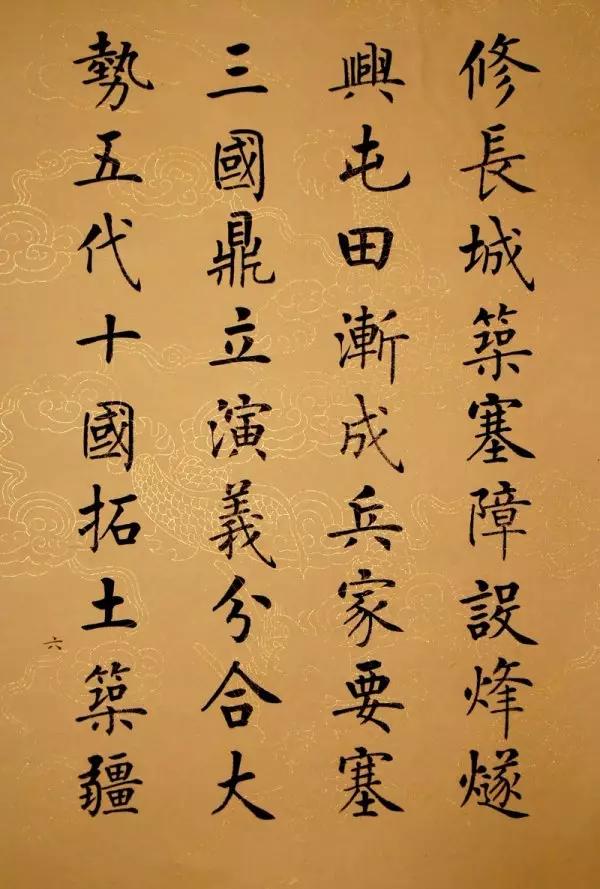 修長城築塞障設烽燧
興屯田漸成兵家要塞
三國鼎立演義分合大
勢五代十國拓土築疆
六